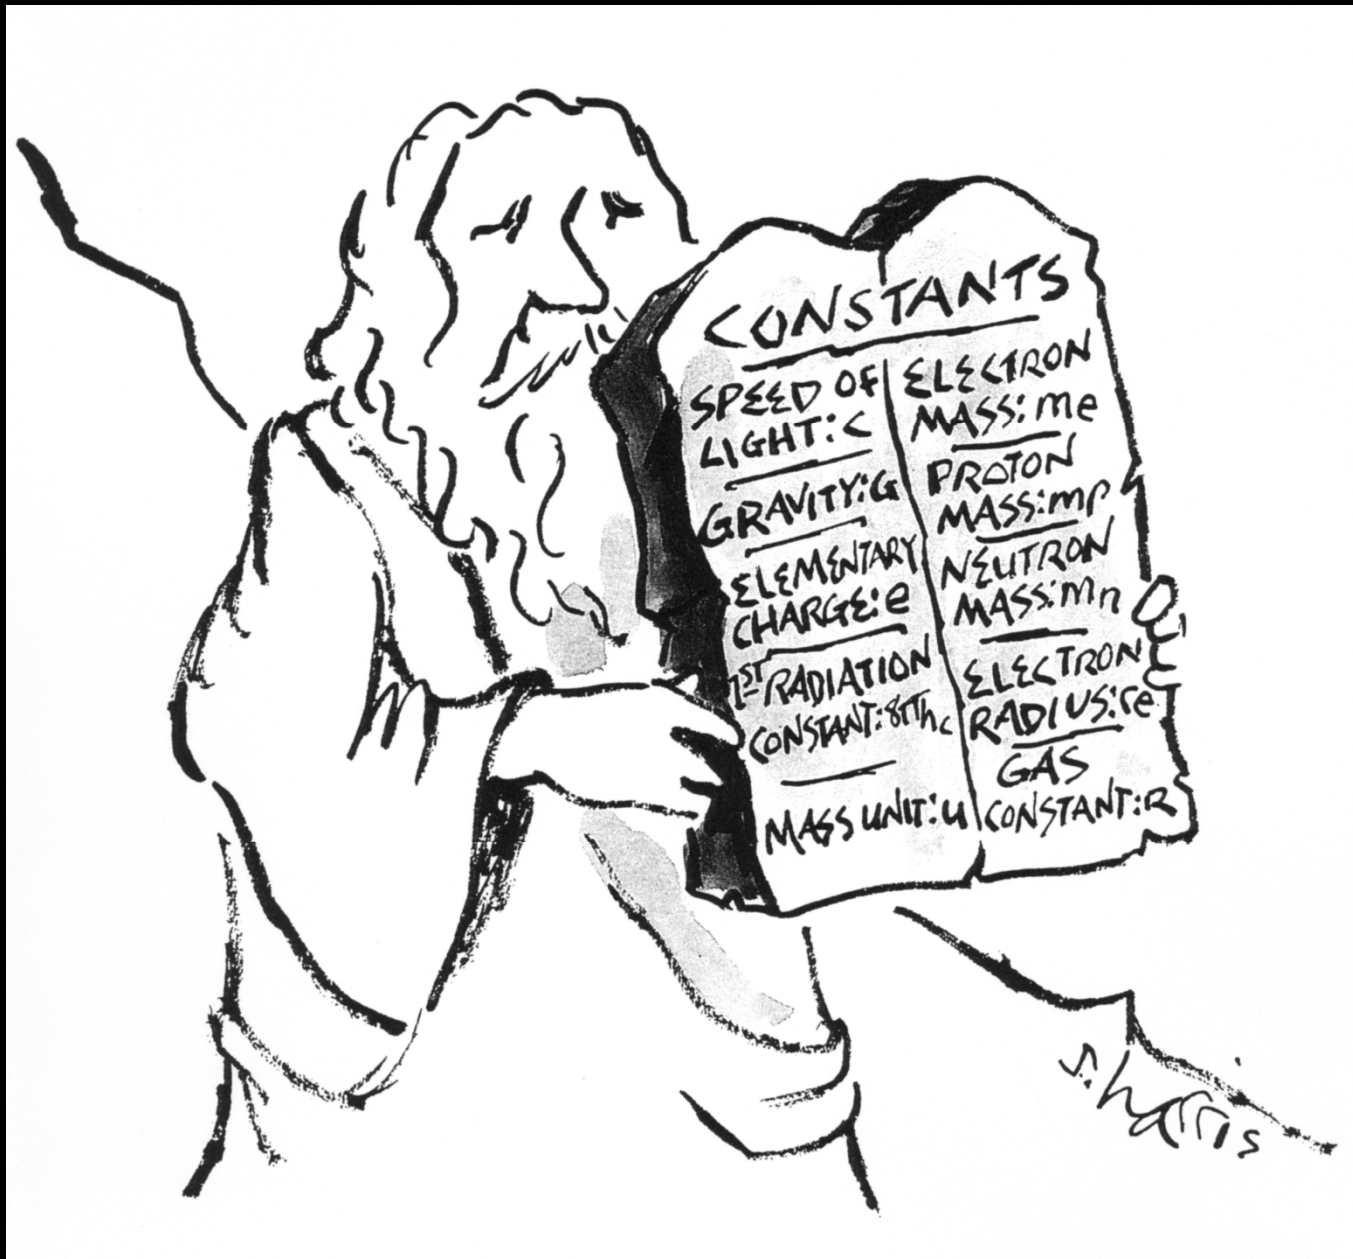 CONSTANTS
SPEED OF
LIGHT: c
GRAVITY: G
ELEMENTARY
CHARGE: e
1ST RADIATION
CONSTANT: 8πhc
MASS UNIT: u
ELECTRON
MASS: me
PROTON
MASS: mp
NEUTRON
MASS: mn
ELECTRON
RADIUS: re
GAS
CONSTANT: R
s. harris